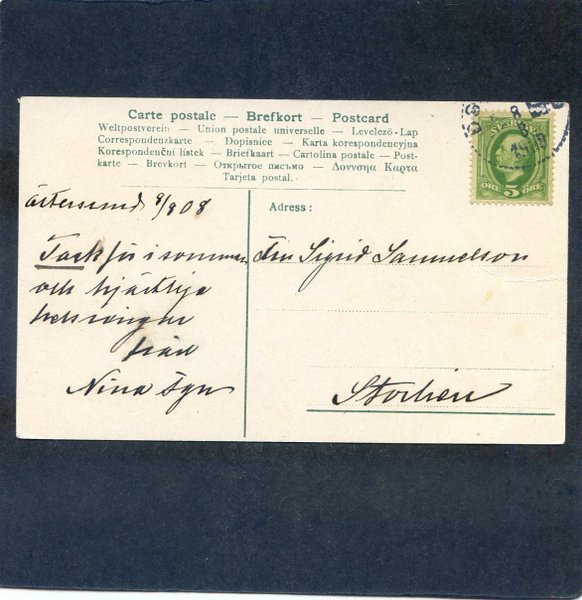 Carte postale — Brefkort — Postcard
Weltpostverein — Union postale universelle — Levelezö-Lap
Correspondenzkarte — Dopisnice — Karta korespondencyjna
Korespondenční lístek — Briefkaart — Cartolina postale — Post-
karte — Brevkort — Открытое письмо — Δοννσηα Καρτα
Tarjeta postal.
SVERIGE
5
ÖRE ÖRE
Östersund 8/8 08
Adress:
Tack för i sommar
och hjärtliga
helsningar
från
Nina
Fru Sigrid Samuelson
Storlien